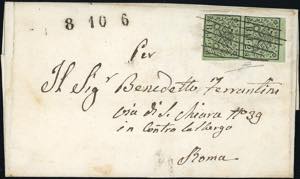 8 10 6
Per
Il Sigr Benedetto Ferrantini
via di S. Chiara No 39
in Contro la
Roma